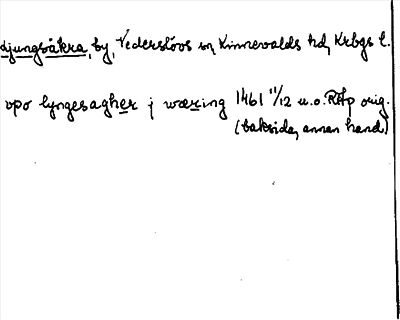 Ljungsåkra, by, Vederslövs sn, Kinnevalds hd, Krbgs l.
vpo lyngesagher j wæring 1461 11/12 u.o. RAp orig.
(baksida, annan hand)